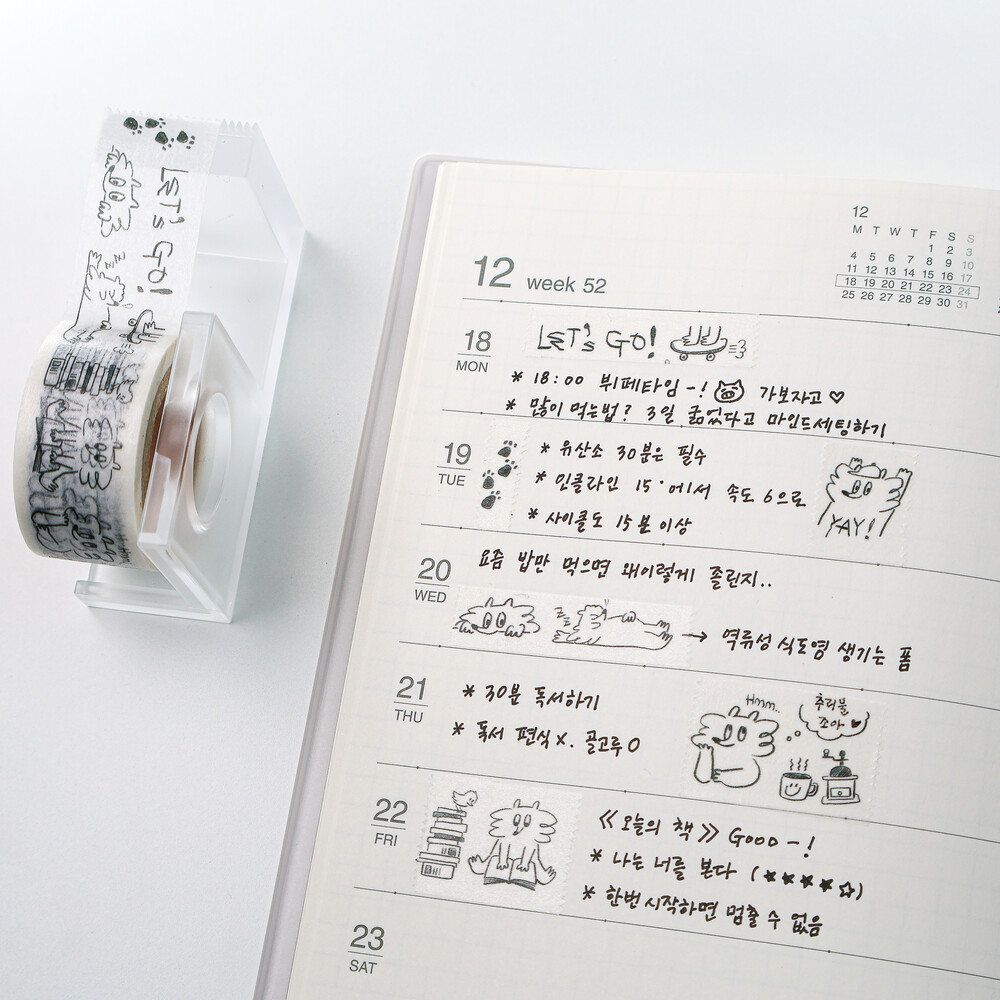 LET'S GO!
12
M T W T F S S
1 2 3
4 5 6 7 8 9 10
11 12 13 14 15 16 17
18 19 20 21 22 23 24
25 26 27 28 29 30 31
12 week 52
18
MON
LET'S GO!
* 18:00 뷔페타임-! 가보자고♡
* 많이 먹는법? 3일 굶었다고 마인드세팅하기
19
TUE
* 유산소 30분은 필수
* 인클라인 15°에서 속도 6으로
* 사이클도 15분 이상
YAY!
20
WED
요즘 밥만 먹으면 왜이렇게 졸린지..
zzz
→ 역류성 식도염 생기는 폼
21
THU
* 30분 독서하기
* 독서 편식 X. 골고루 O
Hmm..
추러블
조아♥
22
FRI
《오늘의 책》 Good-!
* 나는 너를 본다 (★★★★☆)
* 한번 시작하면 멈출 수 없음
23
SAT